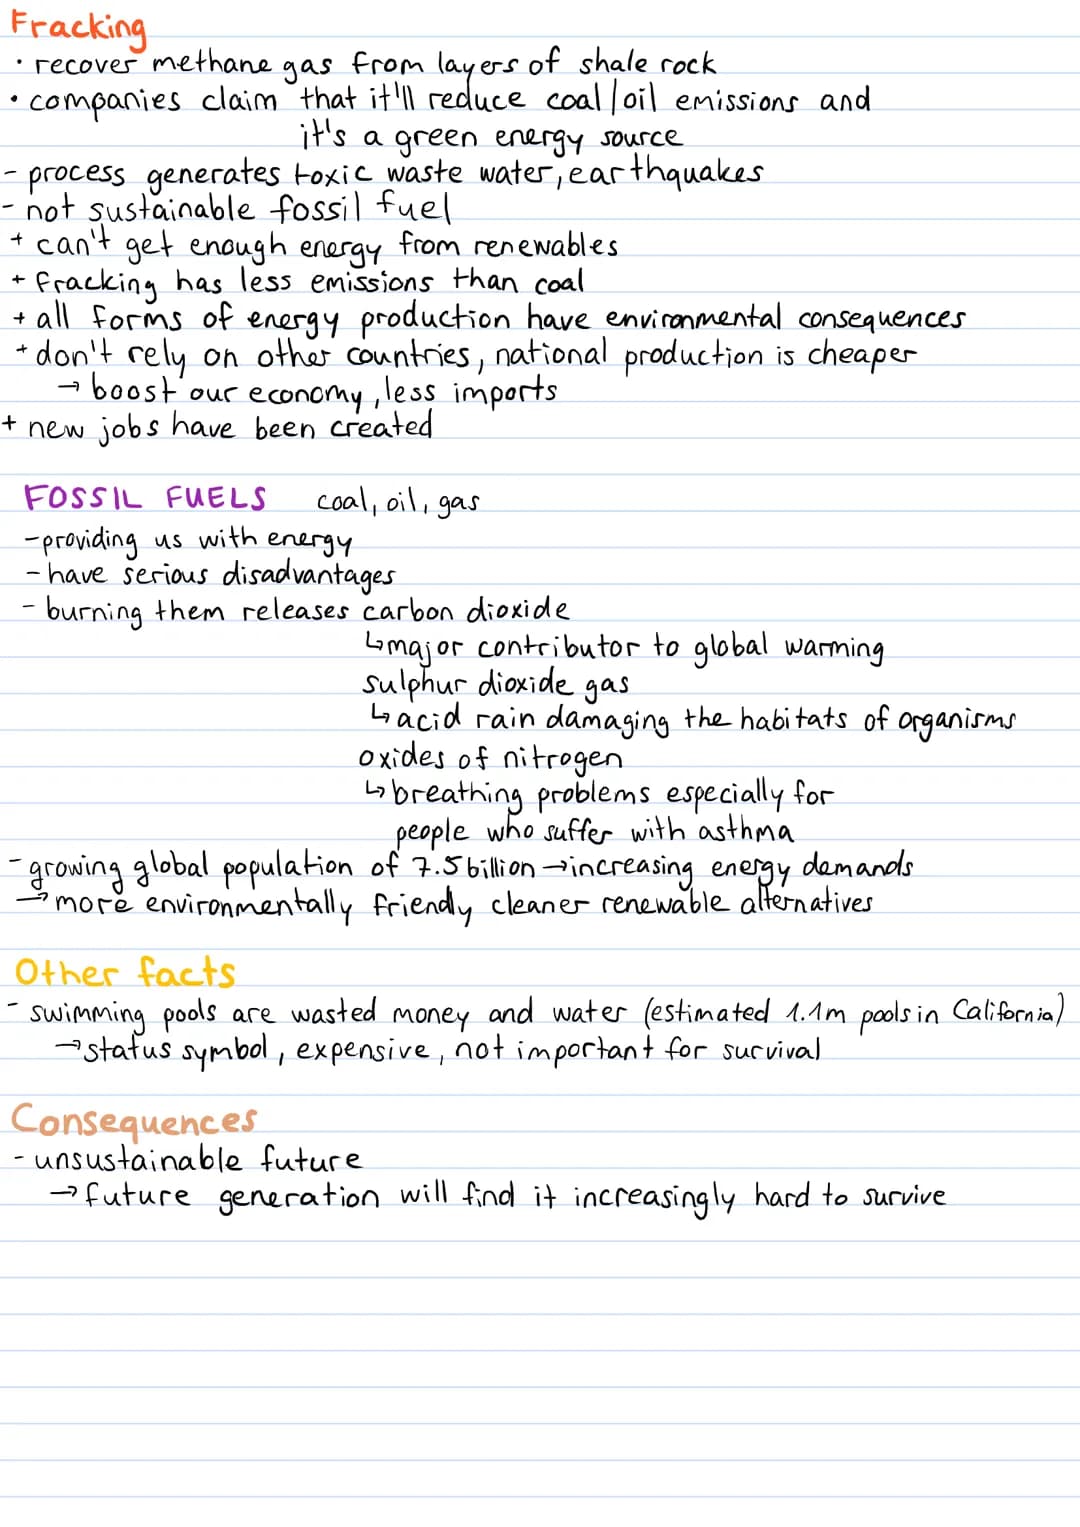 Fracking
• recover methane gas from layers of shale rock
• companies claim that it'll reduce coal/oil emissions and
it's a green energy source
- process generates toxic waste water, earthquakes
- not sustainable fossil fuel
+ can't get enough energy from renewables
+ fracking has less emissions than coal
+ all forms of energy production have environmental consequences
+ don't rely on other countries, national production is cheaper
→ boost our economy, less imports
+ new jobs have been created
FOSSIL FUELS coal, oil, gas
- providing us with energy
- have serious disadvantages
- burning them releases carbon dioxide
↳ major contributor to global warming
sulphur dioxide gas
↳ acid rain damaging the habitats of organisms
oxides of nitrogen
↳ breathing problems especially for
people who suffer with asthma
- growing global population of 7.5 billion → increasing energy demands
→ more environmentally friendly cleaner renewable alternatives
Other facts
- swimming pools are wasted money and water (estimated 1.1m pools in California)
→ status symbol, expensive, not important for survival
Consequences
- unsustainable future
→ future generation will find it increasingly hard to survive